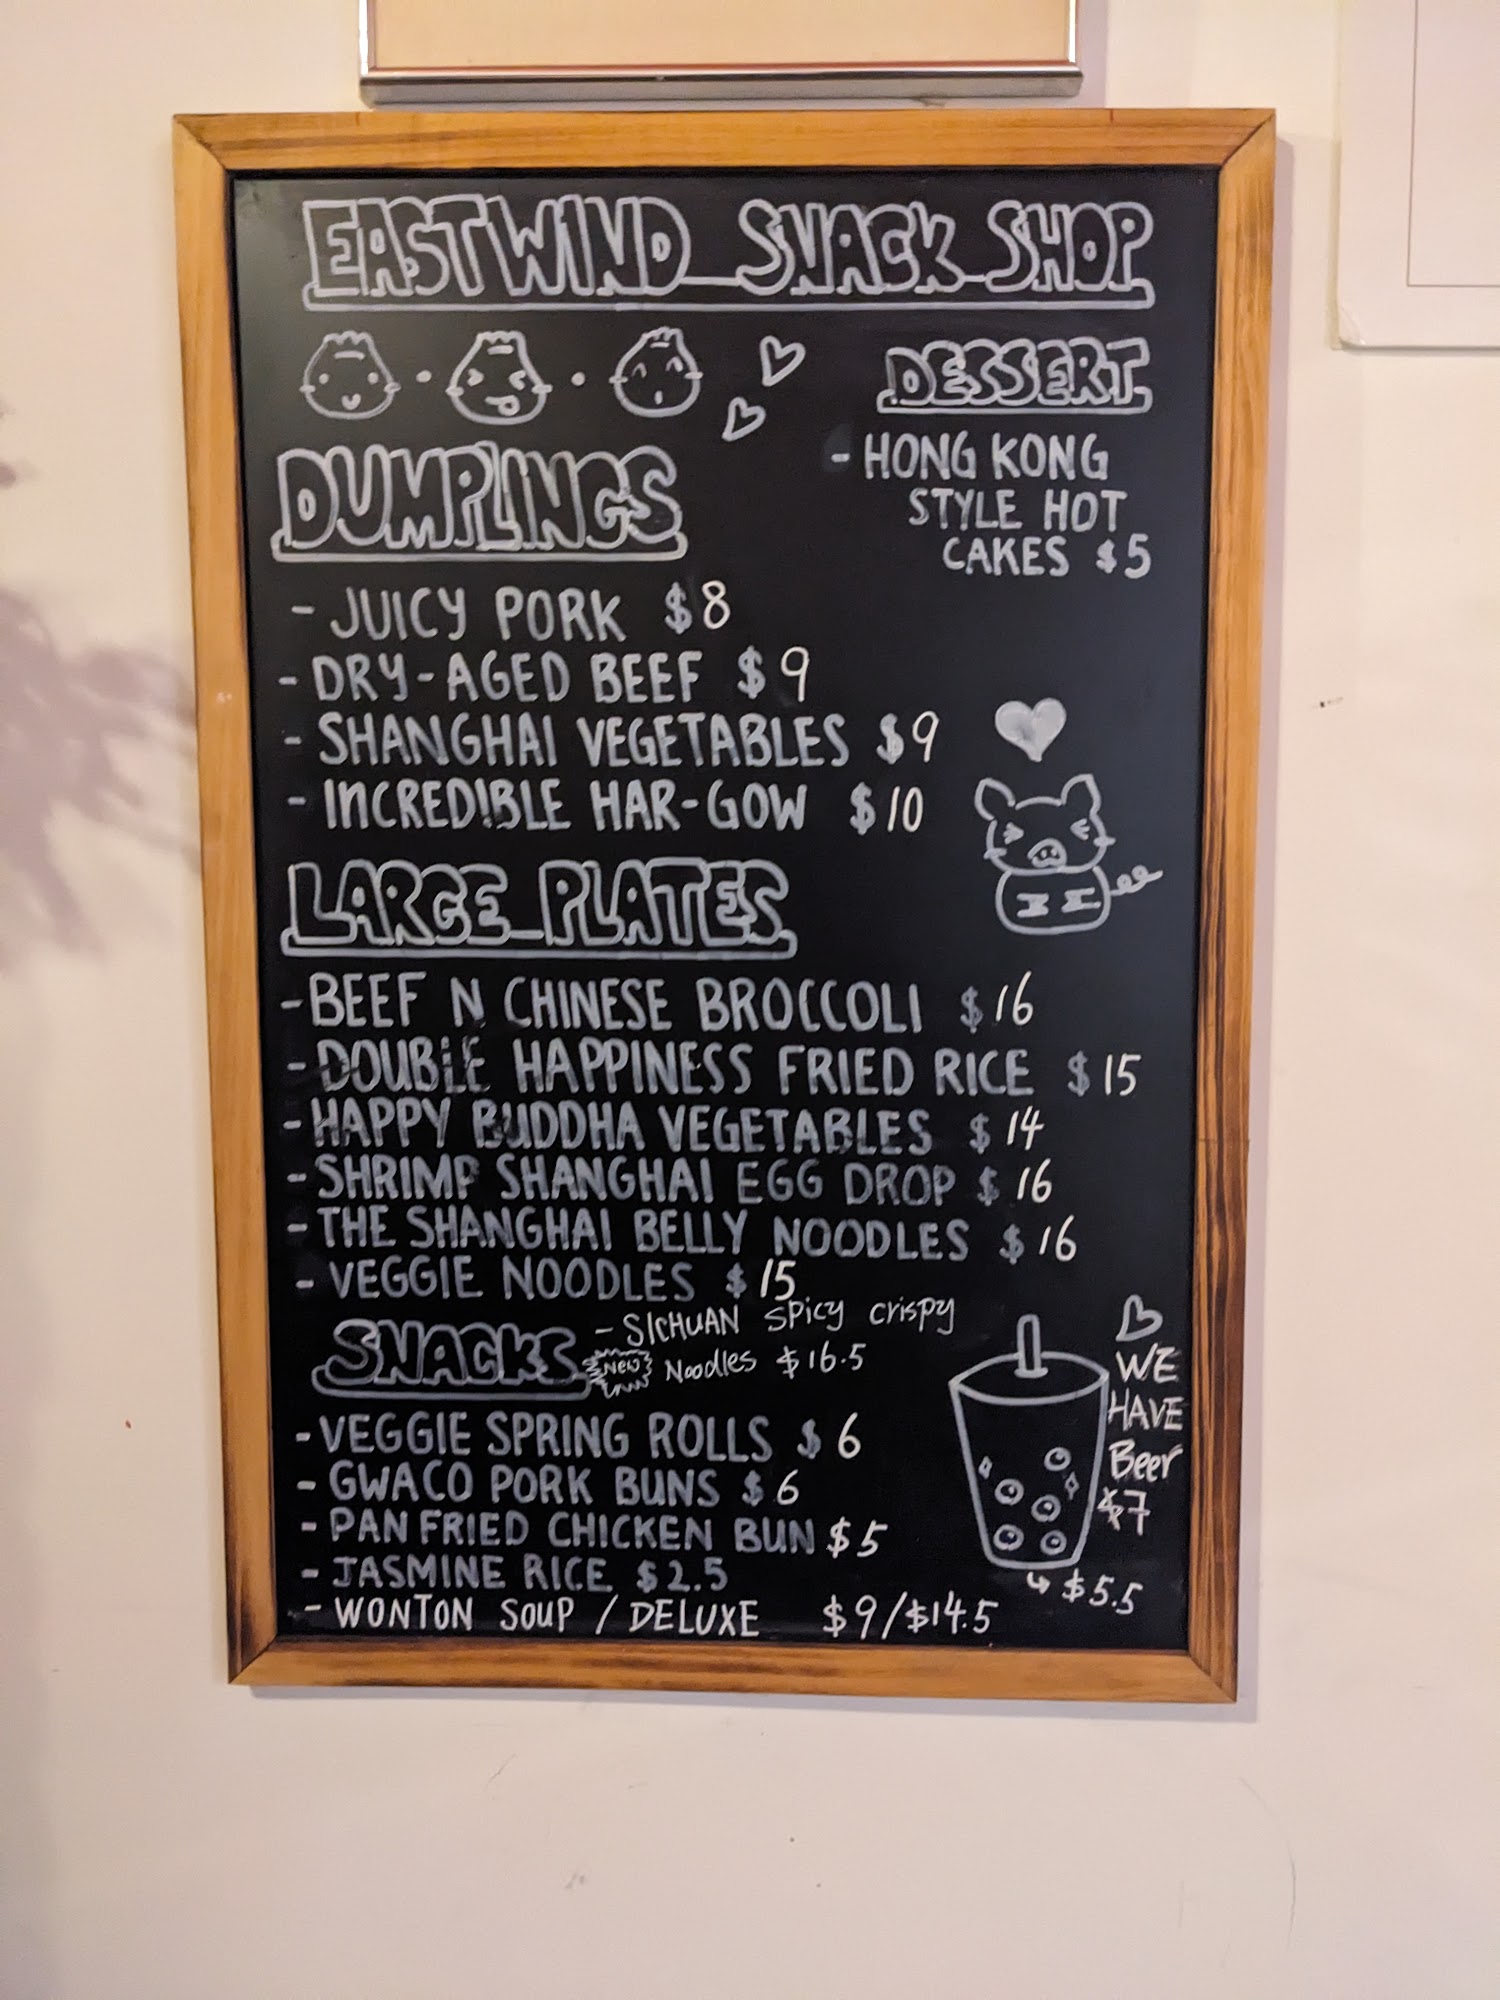 EASTWIND SNACK SHOP
DESSERT
- HONG KONG
STYLE HOT
CAKES $5
DUMPLINGS
- JUICY PORK $8
- DRY-AGED BEEF $9
- SHANGHAI VEGETABLES $9
- INCREDIBLE HAR-GOW $10
LARGE PLATES
- BEEF N CHINESE BROCCOLI $16
- DOUBLE HAPPINESS FRIED RICE $15
- HAPPY BUDDHA VEGETABLES $14
- SHRIMP SHANGHAI EGG DROP $16
- THE SHANGHAI BELLY NOODLES $16
- VEGGIE NOODLES $15
- SICHUAN SPicy crispy
New Noodles $16.5
SNACKS
- VEGGIE SPRING ROLLS $6
- GWACO PORK BUNS $6
- PAN FRIED CHICKEN BUN $5
- JASMINE RICE $2.5
- WONTON SOUP / DELUXE $9/$14.5
WE
HAVE
Beer
$7
↳ $5.5